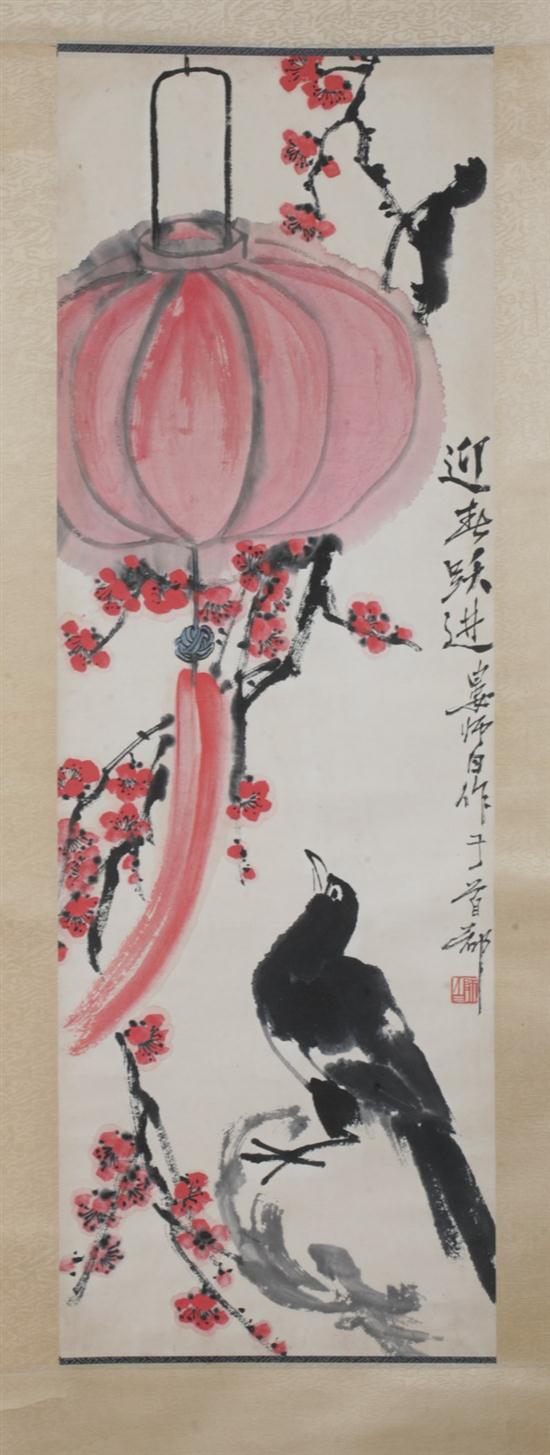 迎春跃进
娄师白作于首都